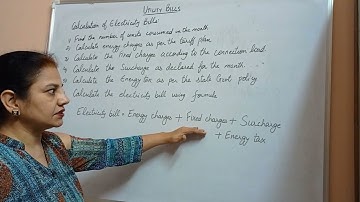 UTILITY BILLS
Calculation of Electricity Bills:
1) Find the number of units consumed in the month
2) Calculate energy charges as per the tariff plan
3) Calculate the Fixed charges according to the connection load
4) Calculate the Surcharge as declared for the month.
5) Calculate the Energy tax as per the state Govt policy
Calculate the electricity bill using formula
Electricity bill = Energy charges + Fixed charges + Surcharge
+ Energy tax